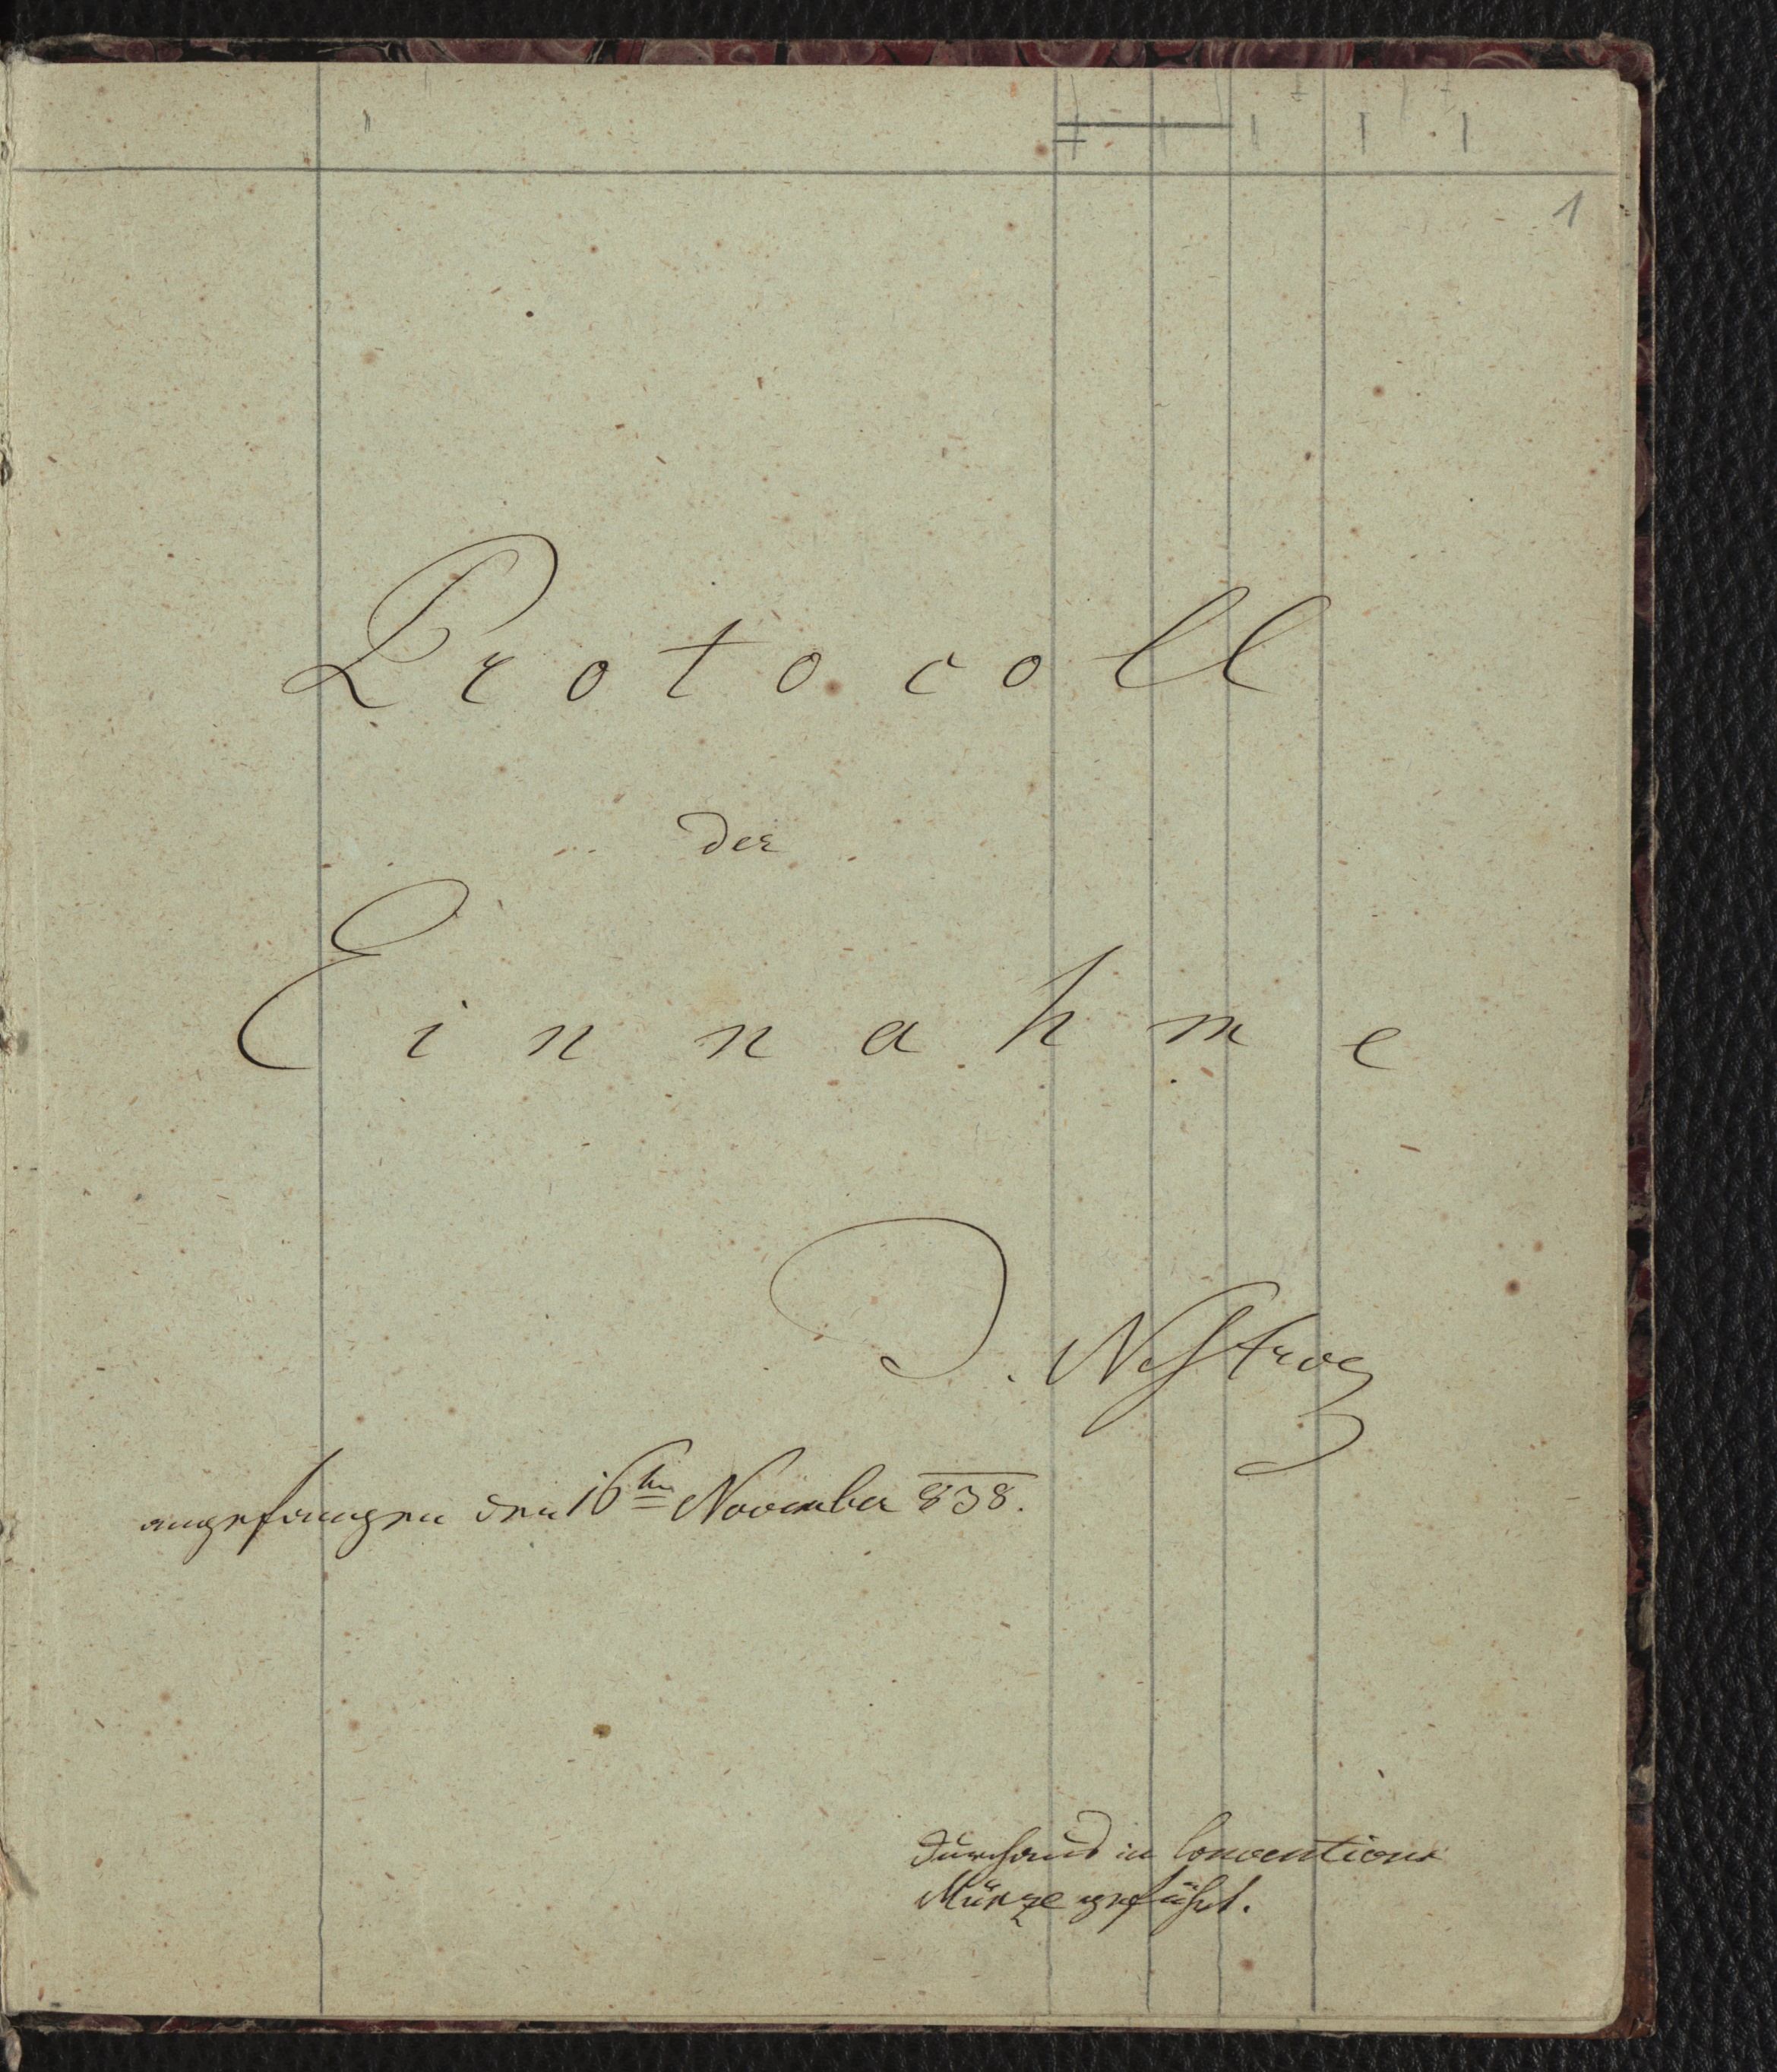 1
Protocoll
der
Einnahme
J. Nestroy
angefangen den 16ten November 838.
durchaus in Conventions
Münze geführt.